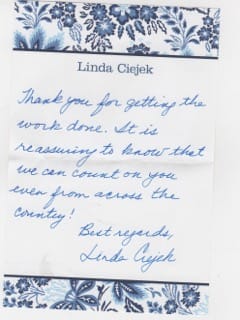 Linda Ciejek
Thank you for getting the
work done. It is
reassuring to know that
we can count on you
even from across the
country!
Best regards,
Linda Ciejek